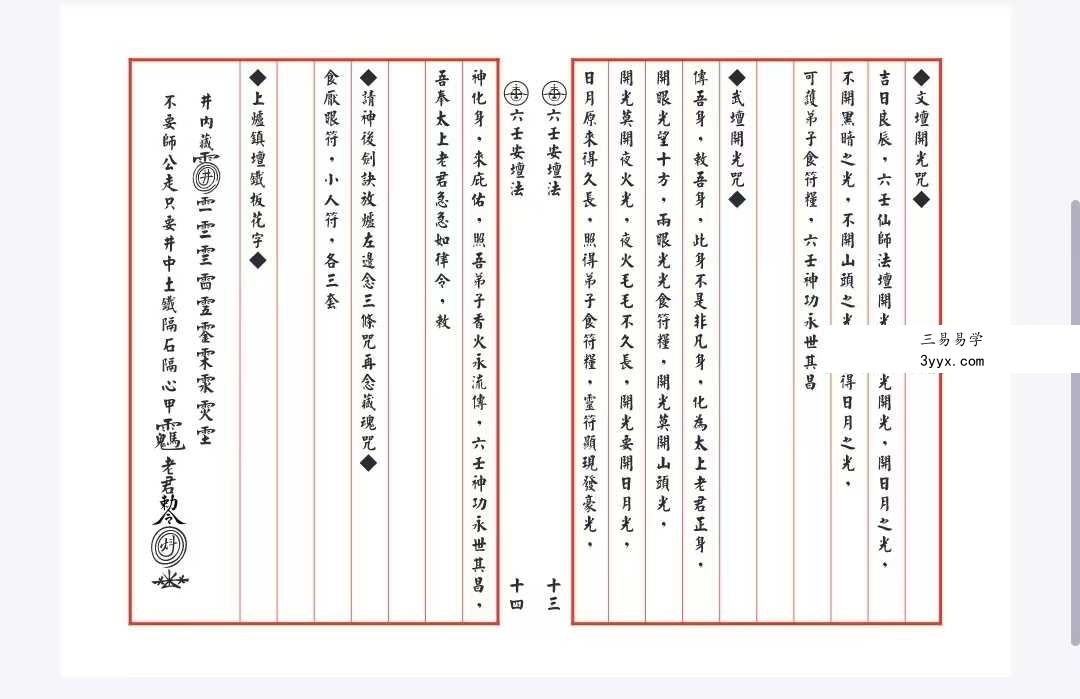 ◆文壇開光咒◆
吉日良辰，六壬仙師法壇開光 光開光，開日月之光，
不開黑暗之光，不開山頭之光 得日月之光，
可護弟子食符糧，六壬神功永世其昌
◆武壇開光咒◆
傳吾身，敕吾身，此身不是非凡身，化為太上老君正身，
開眼光望十方，兩眼光光食符糧，開光莫開山頭光，
開光莫開夜火光，夜火毛毛不久長，開光要開日月光，
日月原來得久長，照得弟子食符糧，靈符顯現發豪光，
六壬安壇法
十三
六壬安壇法
十四
神化身，來庇佑，照吾弟子香火永流傳，六壬神功永世其昌，
吾奉太上老君急急如律令，敕
◆請神後劍訣放爐左邊念三條咒再念藏魂咒◆
食厭眼符，小人符，各三套
◆上爐鎮壇鐵板花字◆
井內藏 井
不要師公走只要井中土鐵隔石隔心甲 老君勅令
三易易学
3yyx.com